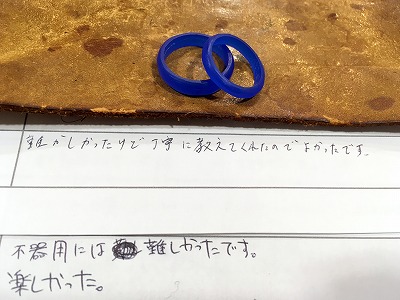 難かしかったけど丁寧に教えてくれたのでよかったです。
不器用には難しかったです。
楽しかった。